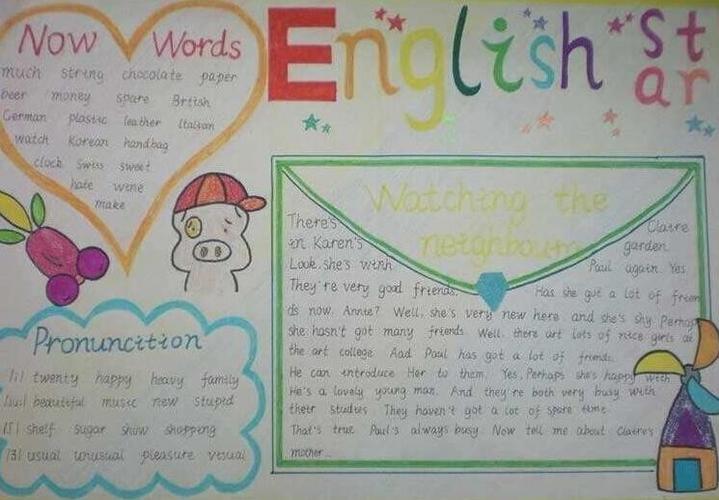 English Star
Now Words
much string chocolate paper
beer money spare British
German plastic leather Italian
watch Korean handbag
clock Swiss sweet
hate wine
make
Pronuncition
/i/ twenty happy heavy family
/ju:/ beautiful music new stupid
/ʃ/ shelf sugar show shopping
/ʒ/ usual unusual pleasure visual
Watching the
neighbours
There's Claire
in Karen's garden.
Look. she's with Paul again Yes.
They're very good friends. Has she got a lot of frien
ds now. Annie? Well, she's very new here and she's shy Perhap
she hasn't got many friends. Well. there art lots of nice girls at
the art college. Aad Paul has got a lot of friends.
He can introduce Her to them. Yes. Perhaps she's happy with
He's a lovely young man. And they're both very busy with
their studies. They haven't got a lot of spare time.
That's true. Paul's always busy. Now tell me about Claire's
mother...